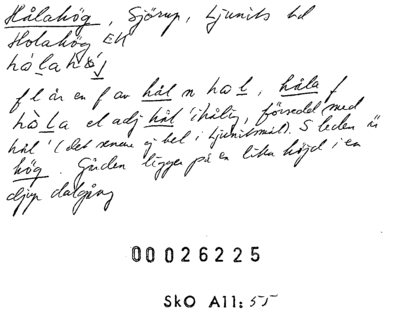 Hålahög, Sjörup, Ljunits hd
Holahög EK
hålahö
f l är en f av hål n hål, håla f
håla el adj hål 'ihålig, försedd med
hål' (det senare ej bel i Ljunitsmål). S leden är
hög. Gården ligger på en liten höjd i en
djup dalgång
00026225
SkO All: 55